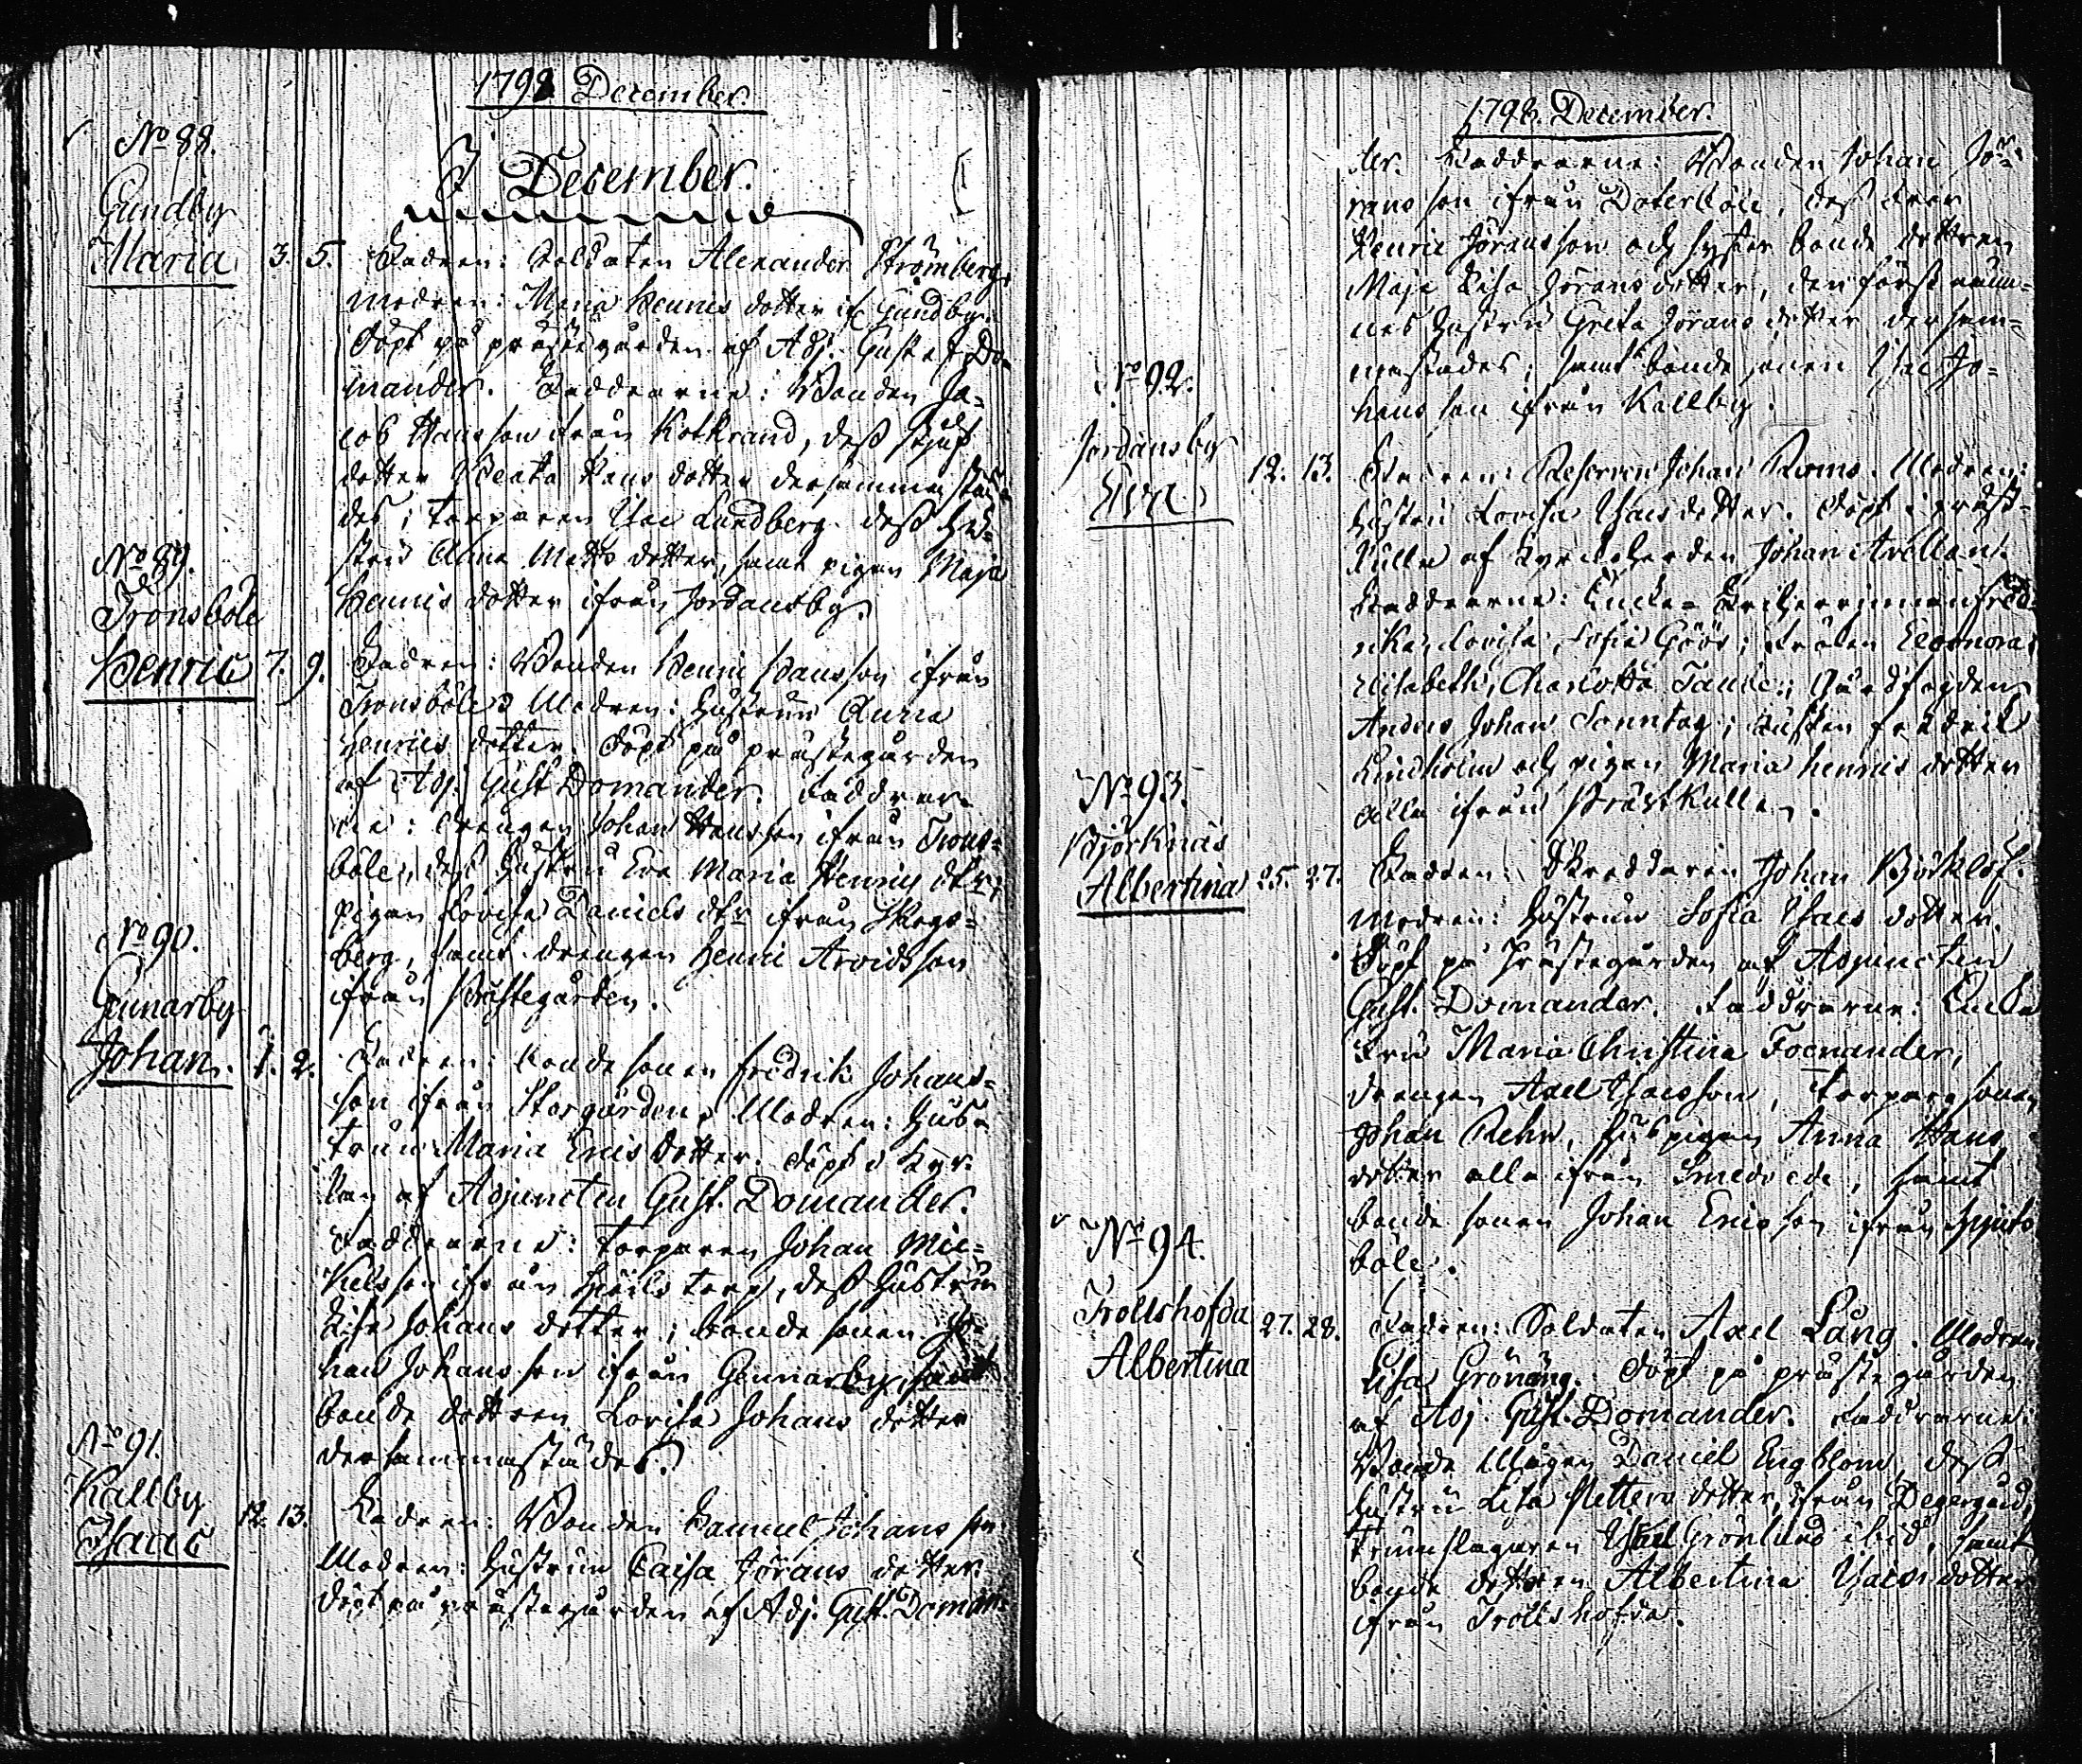 1798 December.
No 88.
Gundby
Maria 3. 5.
I December.
Fadren: Soldaten Alexander Strömberg,
modren: Maria Henrics dotter if. Gundby.
Döpt på prästegården af Adj. Gustaf Do-
mander. Faddrarne: Bonden Ja-
cob Hansson ifrån Kotkrand, dess
dotter Beata Hans dotter dersammastä-
des; torparen Isac Lundberg dess hu-
stru Anna Matts dotter, samt pigan Maja
Henrics dotter ifrån Jordansby.
No 89.
Tronsböle
Henric 7. 9.
Fadren: Bonden Henric Hansson ifrån
Tronsböle. Modren: hustrun Anna
Henrics dotter. Döpt på prästegården
af Adj. Gust. Domander. Faddrar-
ne: drengen Johan Hansson ifrån Trons-
böle, dess hustru Eva Maria Henrics dtr;
pigan Lovisa Daniels dtr ifrån Skogs-
berg, samt drengen Henric Arvidsson
ifrån Prästegården.
No 90.
Gennarby
Johan. 1. 2.
Fadren: bondesonen Fredrik Johans-
son ifrån Storgården. Modren: hus-
trun Maria Erics dotter. Döpt i Kyr-
kan af Adjuncten Gust. Domander.
Faddrarne: torparen Johan Mic-
kelsson ifrån torp, dess hustru
Lisa Johans dotter; bondesonen Jo-
han Johansson ifrån Gennarby, samt
bondedottren Lovisa Johans dotter
dersammastädes.
No 91.
Källby
Isaac 12. 13.
Fadren: Bonden Samuel Johansson
Modren: hustrun Caisa Jörans dotter.
Döpt på prästegården af Adj. Gust. Doman-
1798. December.
der. Faddrarne: Bonden Johan Jö-
ransson ifrån Dalerböle, dess bror
Henric Jöransson och syster bonde dottren
Maja Lisa Jörans dotter, den förstnäm-
nes hustru Greta Jörans dotter dersam-
mastädes; samt bondesonen Isac Jo-
hansson ifrån Källby.
No 92.
Jordansby
Eva 12. 13.
Fadren: Reserven Johan Roms. Modren:
hustru Lovisa Isacs dotter. Döpt i Präst-
kulla af Kyrkoherden Johan Avellan.
Faddrarne: Enke- Fred-
rika Lovisa Sofia Göös; Fröken Eleonora
Elisabeth Charlotta Taube; Gårdfogden
Anders Johan Sonntag; kusken Fredrik
Lindholm och pigan Maria Henrics dotter
alla ifrån Prästkulla.
No 93.
Björknäs
Albertina 25. 27.
Fadren: Skreddaren Johan Björklöf.
Modren: hustrun Sofia Isacs dotter.
Döpt på Prästegården af Adjuncten
Gust. Domander. Faddrarne: Enke
Fru Maria Christina Fornander,
drengen Axel Isacsson, torparesonen
Johan Rehn, huspigan Anna Hans
dotter alla ifrån Smedsede, samt
bonde sonen Johan Ericsson ifrån
böle.
No 94.
Trollshofda
Albertina 27. 28.
Fadren: Soldaten Axel Lång. Modren
Lisa Gröning. Döpt på prästegården
af Adj. Gust. Domander. Faddrarne:
Bonde Mågen Daniel Engblom, dess
hustru Lisa Petters dotter, ifrån Degergård,
trumslagaren Isac Grönlund ibid, samt
bonde dottren Albertina Isacs dotter
ifrån Trollshofda.